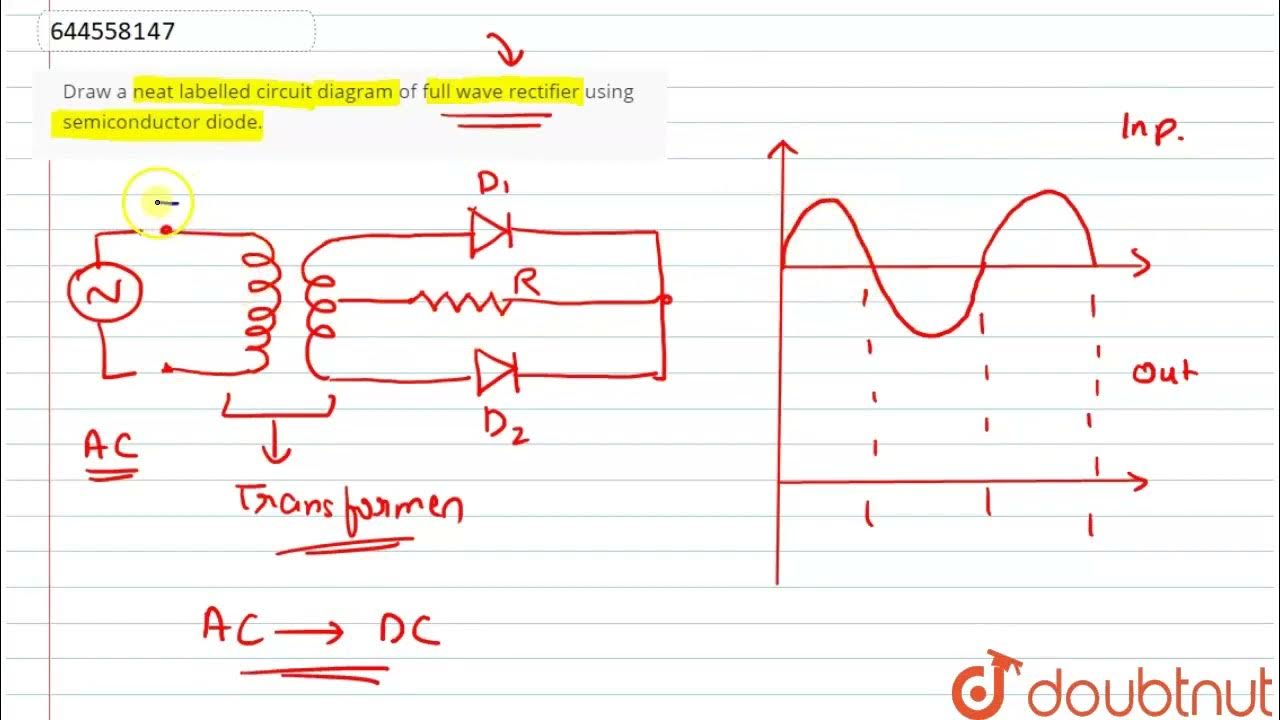 644558147
Draw a neat labelled circuit diagram of full wave rectifier using
semiconductor diode.
Inp.
D1
R
Out
D2
AC
Transformer
AC → DC
doubtnut